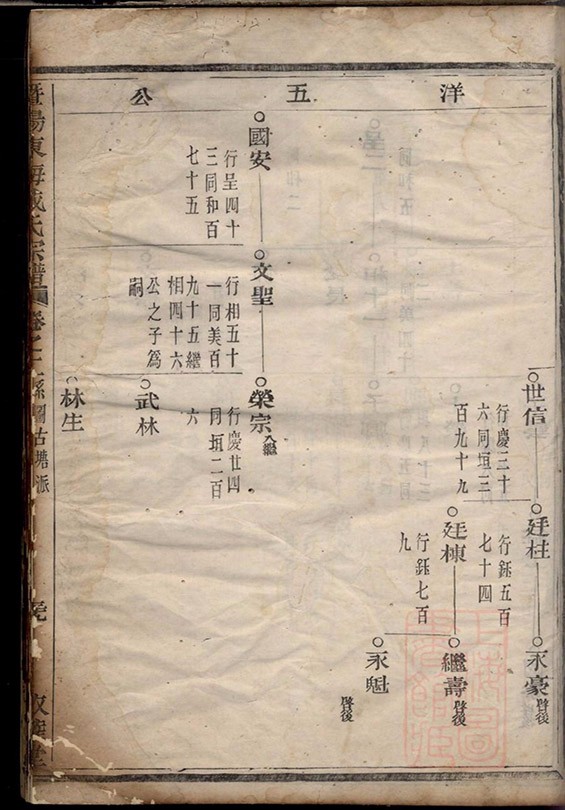 洋五公
世信
行慶三十
六同垣三
百九十九
廷柱
行鈺五百
七十四
永豪 啓後
廷棟
行鈺七百
九
繼壽 啓後
永魁 啓後
國安
行呈四十
三同和百
七十五
文聖
行相五十
一同美百
九十五繼
相四十六
公之子爲
嗣
榮宗 入繼
行慶廿四
同垣二百
六
武林
林生
暨陽東海戚氏宗譜 卷之 系圖古塘派